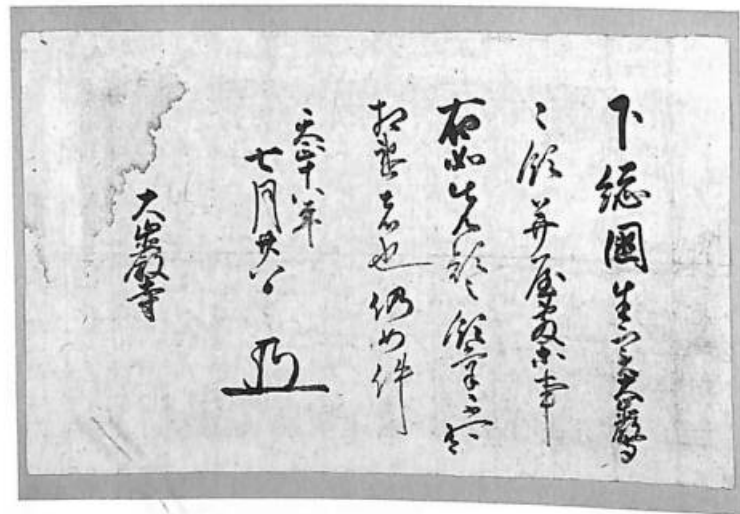 下総國生實大巖寺
々領并屋敷等事
右如先規令領掌不可有
相違者也仍如件
天正十八年
七月廿八日
大巖寺